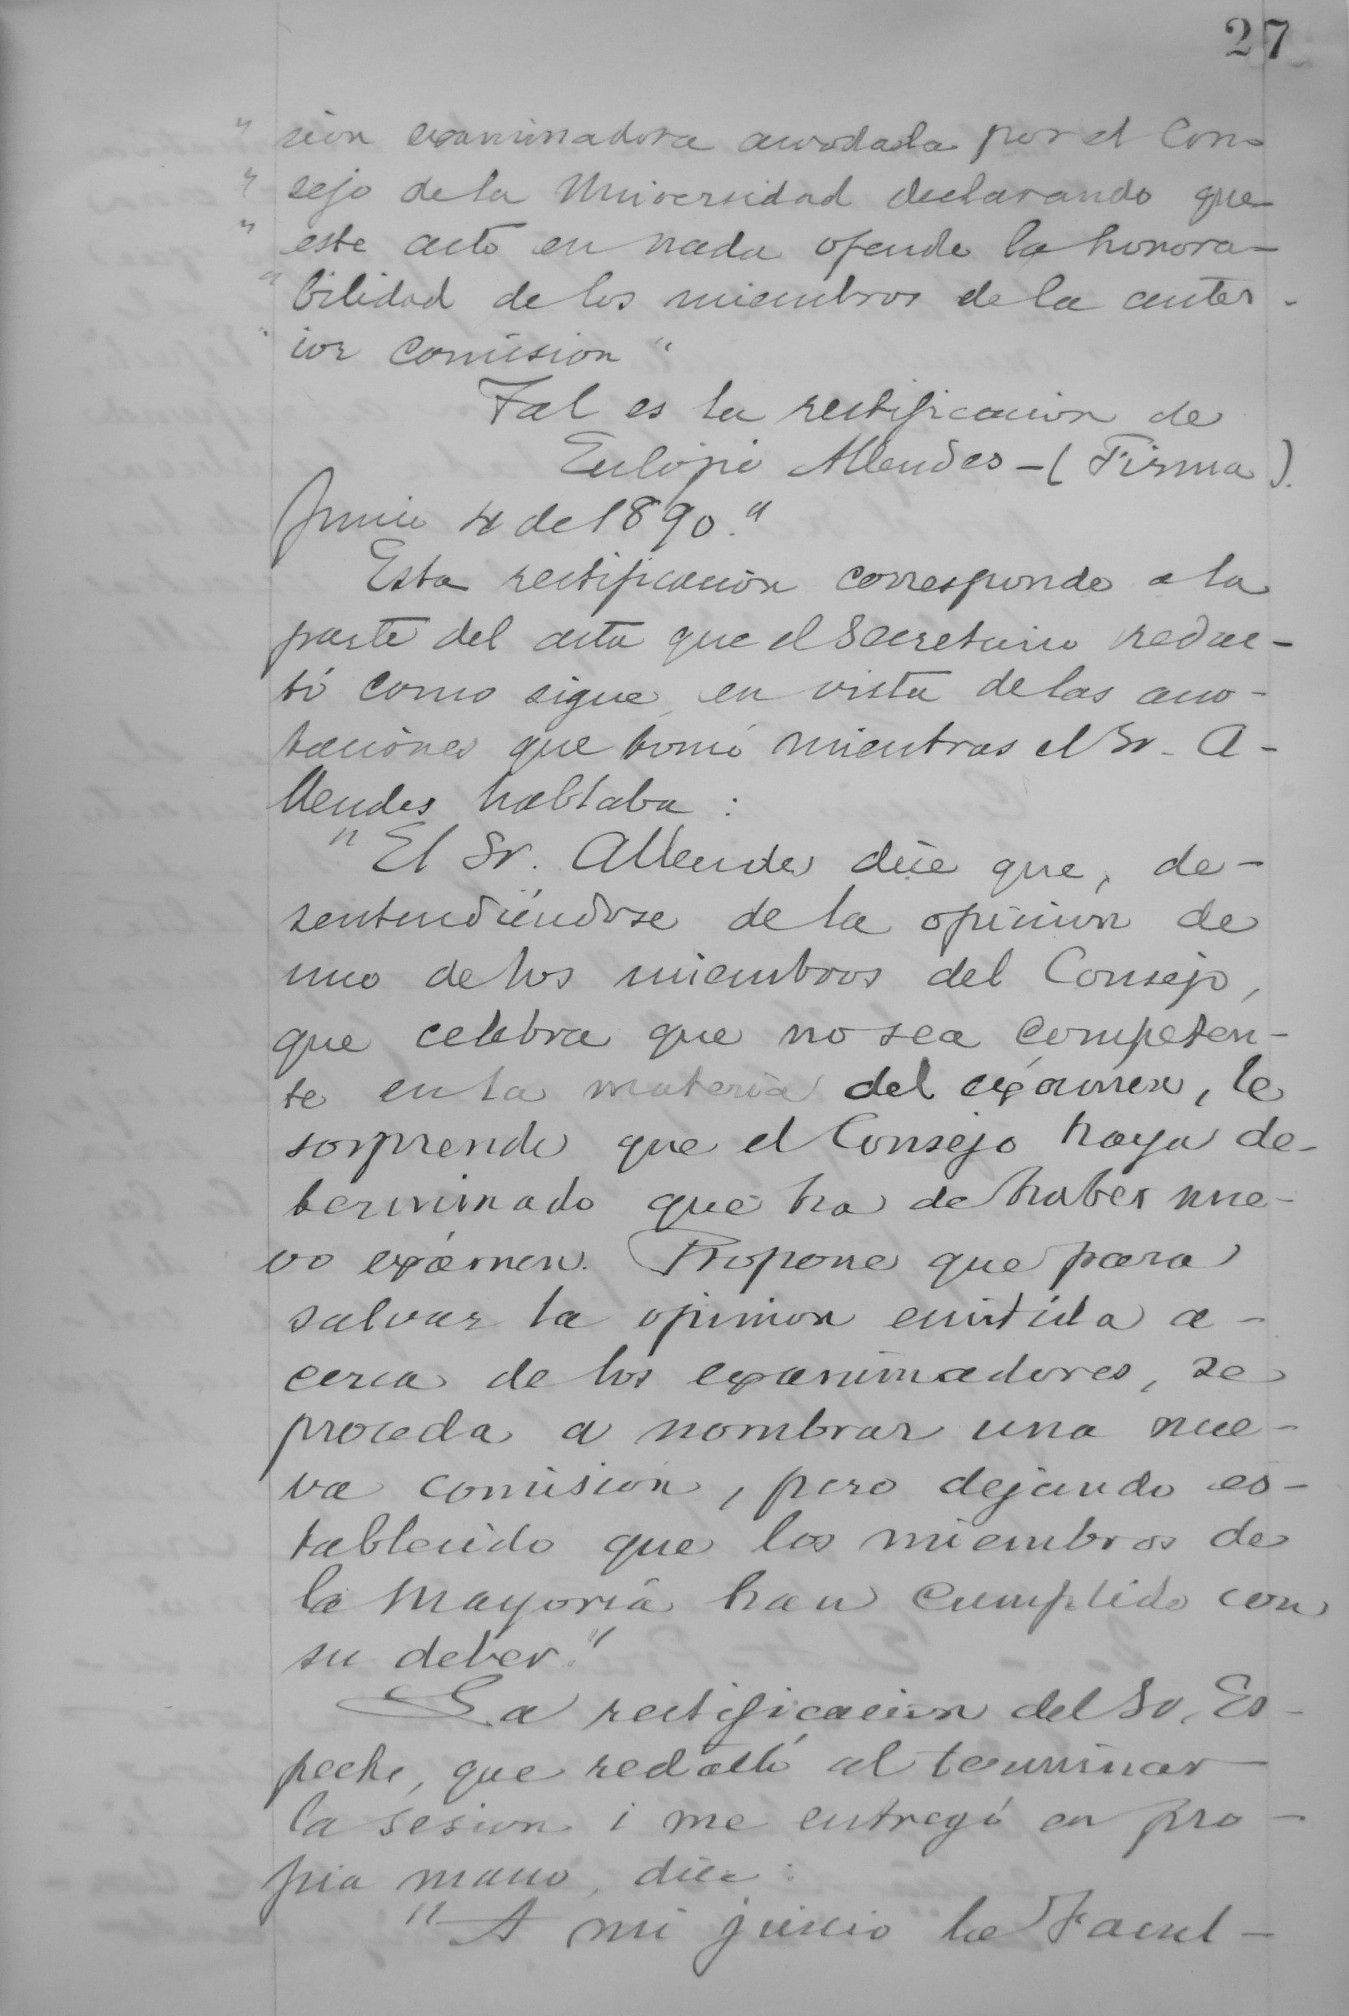 27
" sion examinadora acordada por el Con-
" sejo de la Universidad declarando que
" este acto en nada ofende la honora-
" bilidad de los miembros de la anter-
" ior comision"
Tal es la rectificacion de
Eulojio Allendes - (Firma).
Junio 4 de 1890."
Esta rectificacion corresponde a la
parte del acta que el Secretario redac-
tó como sigue, en vista de las ano-
taciones que tomó mientras el Sr. A-
llendes hablaba :
"El Sr. Allendes dice que, de-
sentendiéndose de la opinion de
uno de los miembros del Consejo,
que celebra que no sea competen-
te en la materia del exámen, le
sorprende que el Consejo haya de-
terminado que ha de haber nue-
vo exámen. Propone que para
salvar la opinion emitida a-
cerca de los examinadores, se
proceda a nombrar una nue-
va comision, pero dejando es-
tablecido que los miembros de
la Mayoría han cumplido con
su deber."
La rectificacion del Sr. Es-
peche, que redactó al terminar
la sesion i me entregó en pro-
pia mano, dice :
"A mi juicio la Facul-